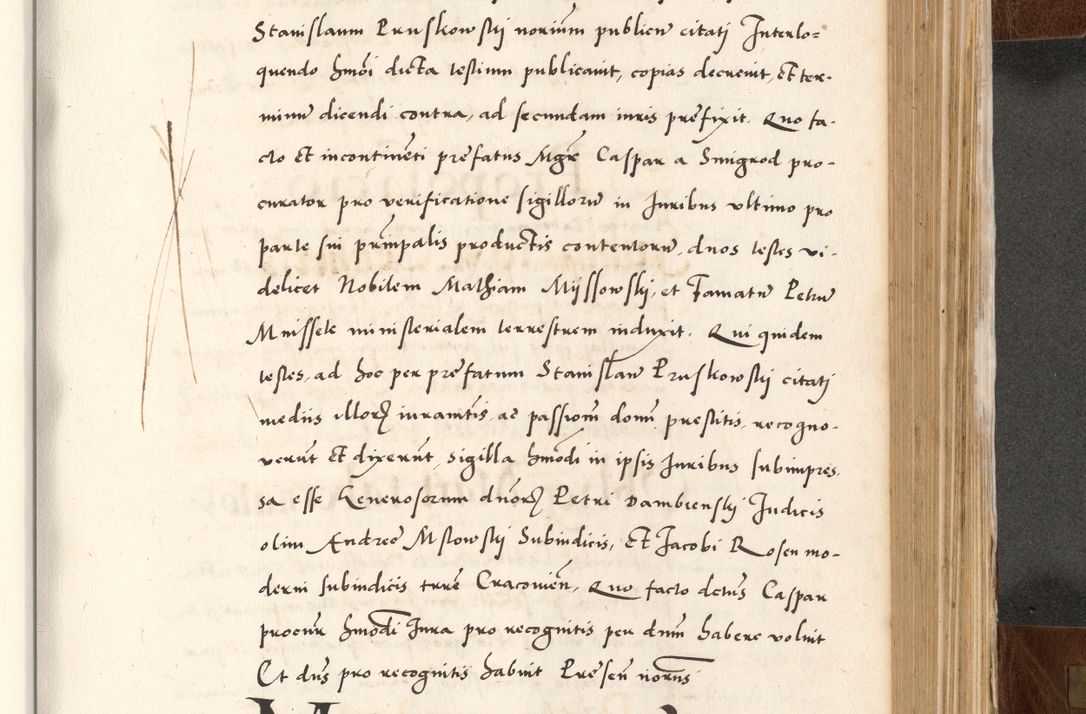 Stanislaum Pruskowskij noriũm publicũ citatj Interlo=
quendo hmõi dicta testium publicauit, copias decreuit, Et ter-
minũ dicendi contra, ad secundam iuris prefixit. Quo fa-
cto Et incontinẽti prefatus Mgr̃ Caspar a Smigrod pro-
curator pro verificatione sigillorũ in Iuribus ultimo pro
parte sui prĩnpalis productis contentorũ, duos testes vi-
delicet Nobilem Mathiam Mijssowskj, et Famatũ Petrũ
Mnissek ministerialem terrestrem induxit. Qui quidem
testes, ad hoc per prefatum Stanislaũ Pruskowskj citatj
mediis illorꝝ iuramt̃is, ac passioñ domĩ prestitis, recogno-
verũt Et dixerũt, sigilla hmõdi in ipsis Iuribus subimpres-
sa esse Generosorum dñorꝝ Petri Dambienskj Iudicis
olim Andree Mstowskj Subiudicis, Et Iacobi Rosen mo-
derni subiudicis terrẽ Cracouieñ, Quo facto dctũs Caspar
procũr hmõdi Iura pro recognitis per dnũm habere voluit
Et dñs pro recognitis habuit Preseñ norũs